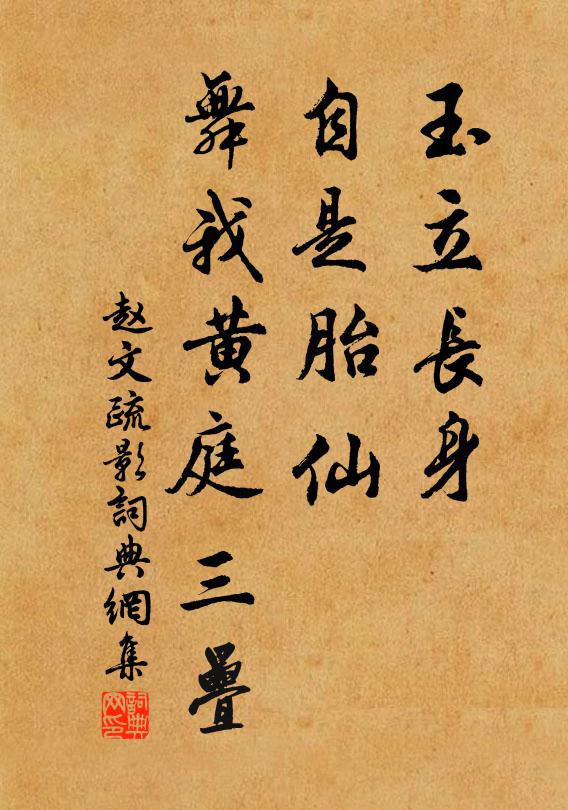 玉立長身
自是胎仙
舞我黄庭三疊
赵文疏影詞典網集
詞典
网印